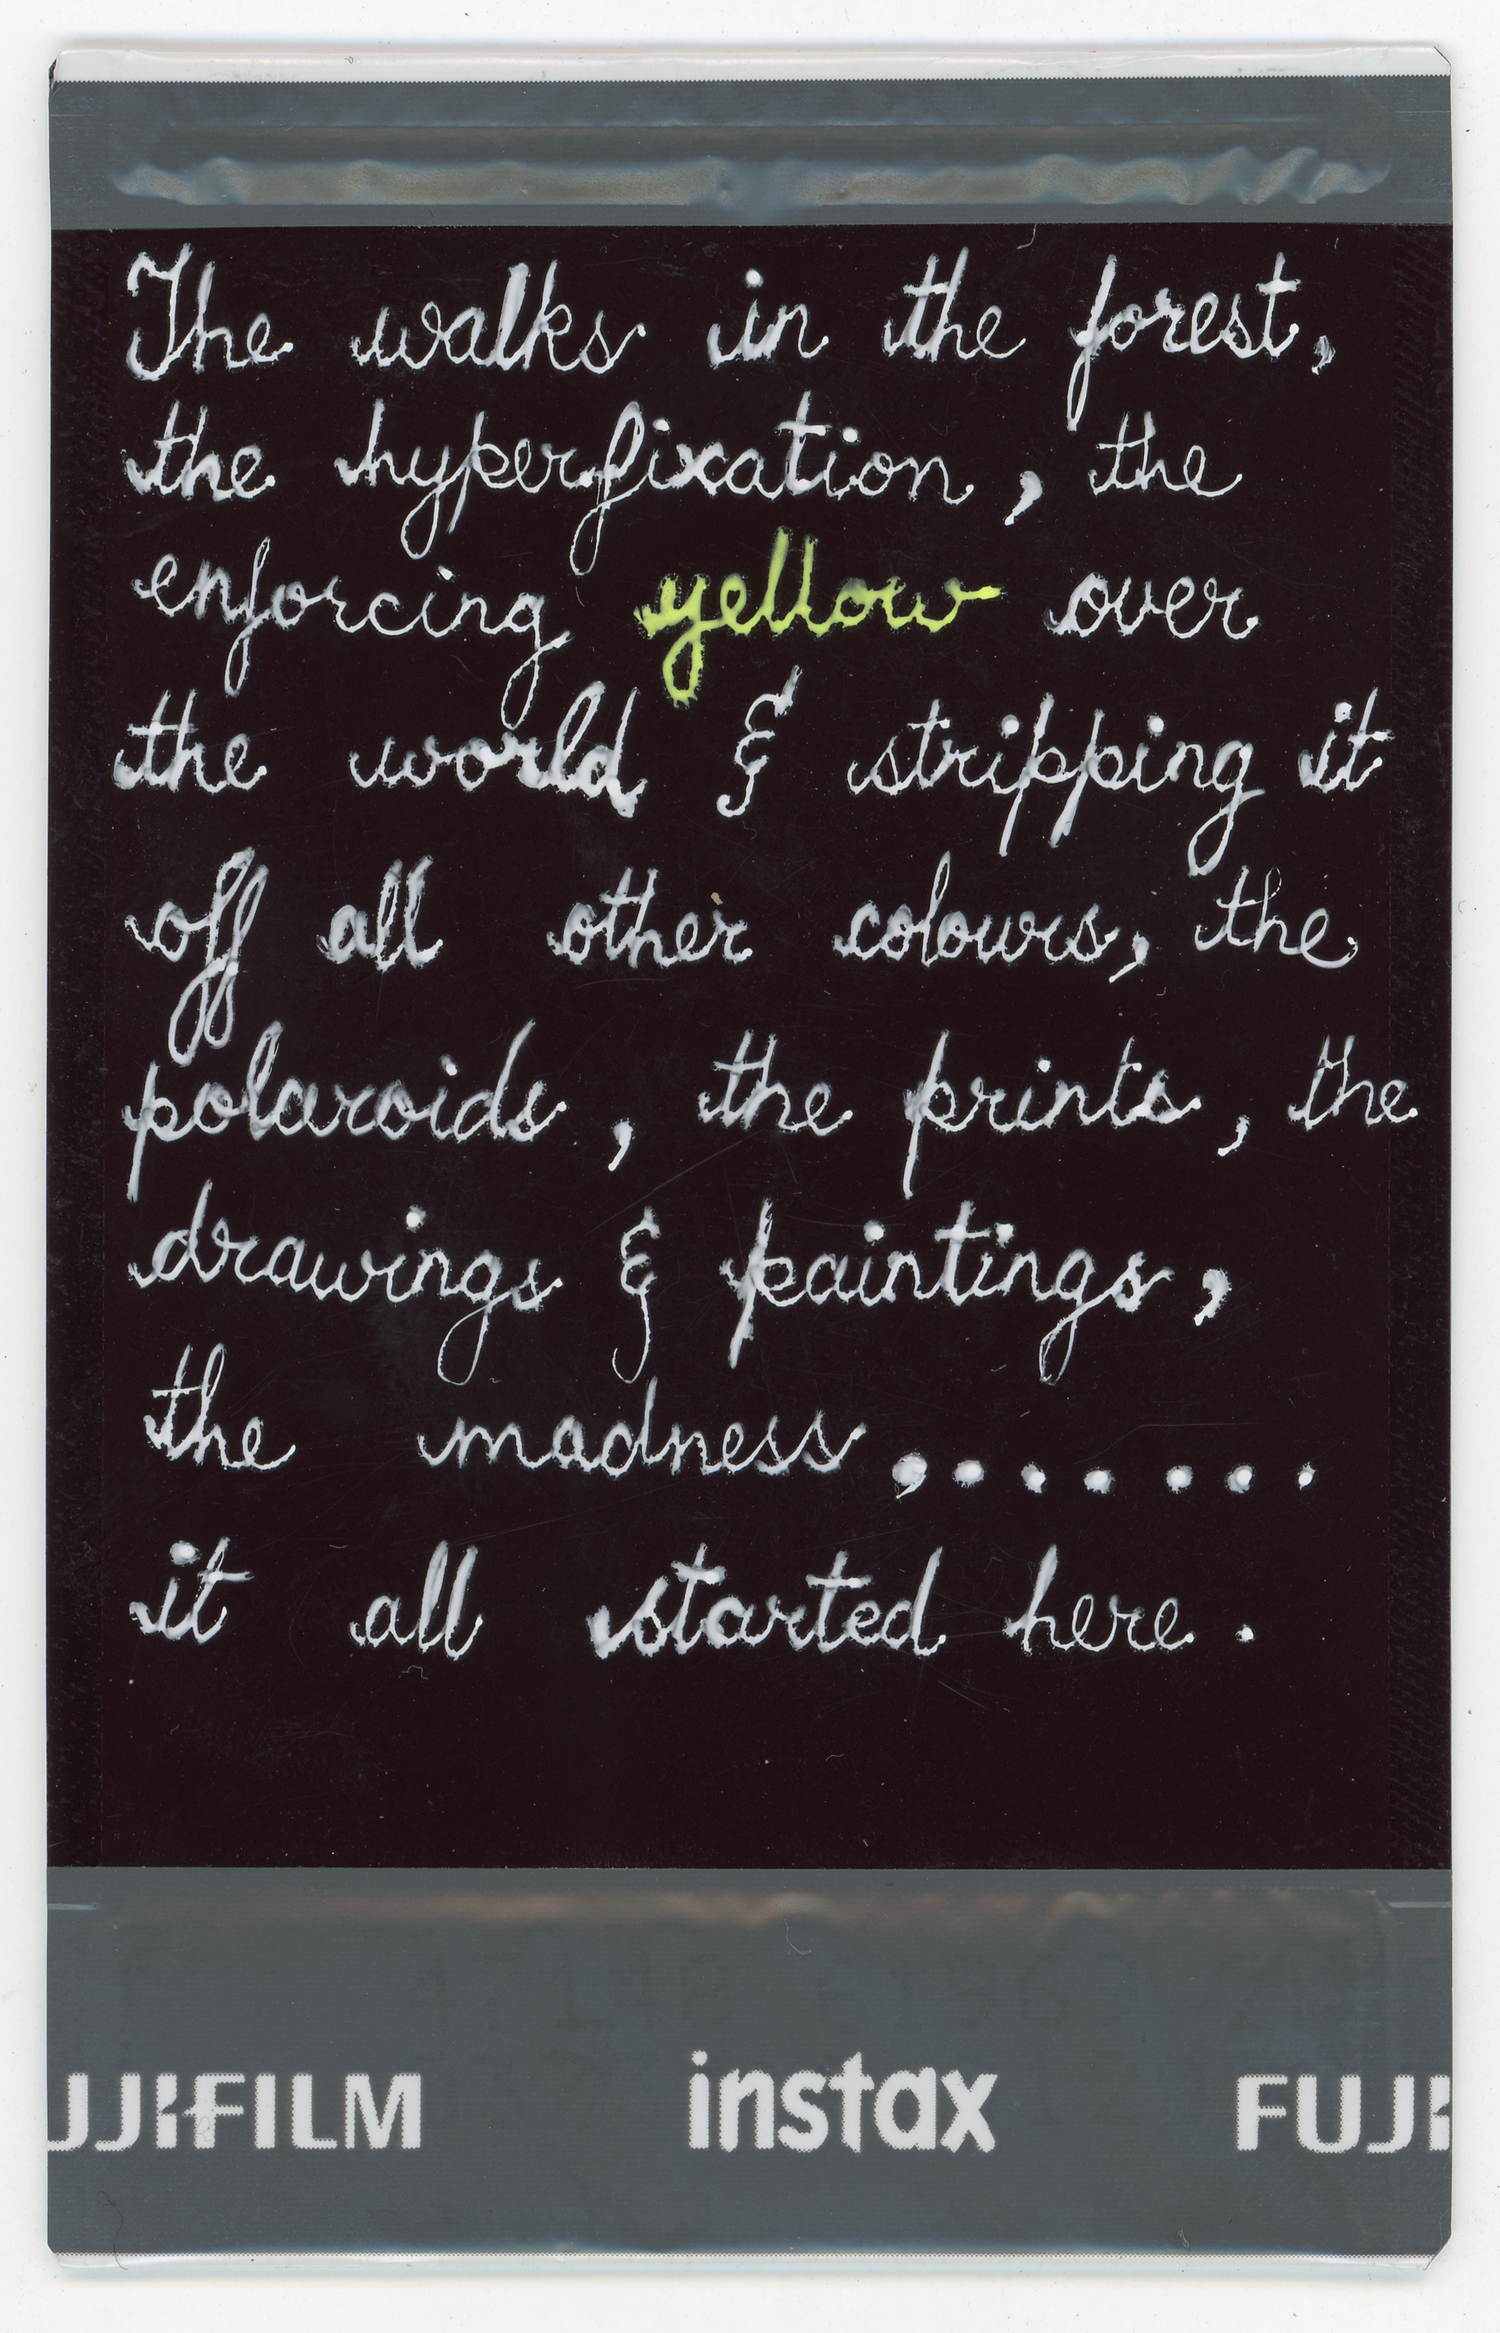 The walks in the forest,
the hyperfixation, the
enforcing yellow over
the world & stripping it
off all other colours, the
polaroids, the prints, the
drawings & paintings,
the madness,......
it all started here.
UJIFILM instax FUJI